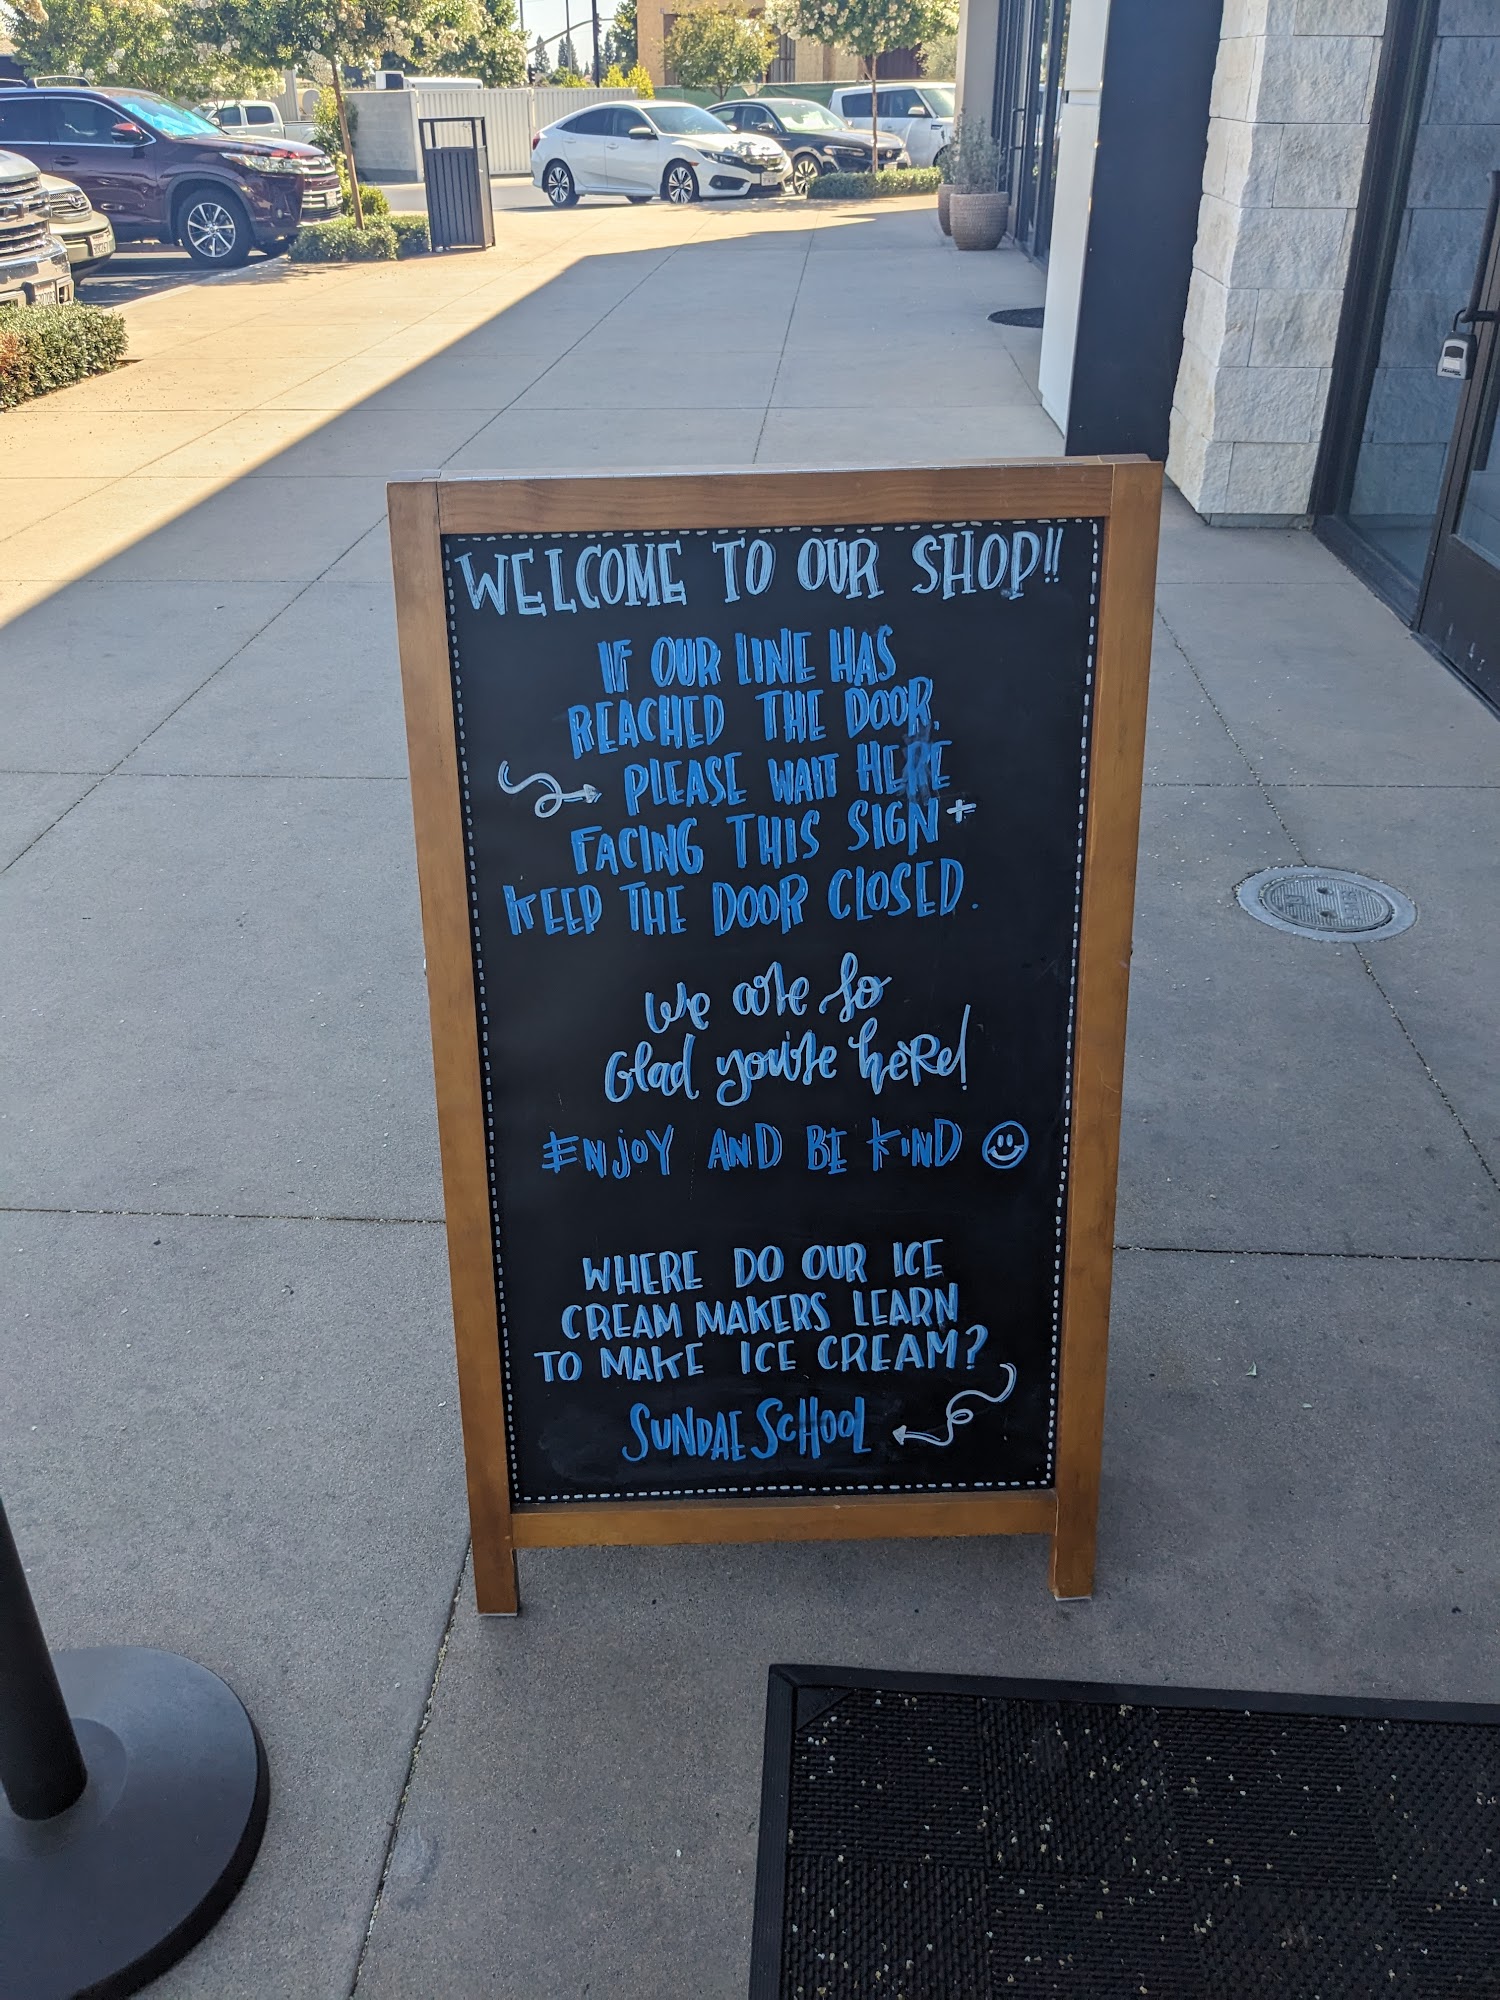 WELCOME TO OUR SHOP!!
IF OUR LINE HAS
REACHED THE DOOR,
PLEASE WAIT HERE
FACING THIS SIGN +
KEEP THE DOOR CLOSED.
We are so
Glad you're here!
ENJOY AND BE KIND
WHERE DO OUR ICE
CREAM MAKERS LEARN
TO MAKE ICE CREAM?
SUNDAE SCHOOL